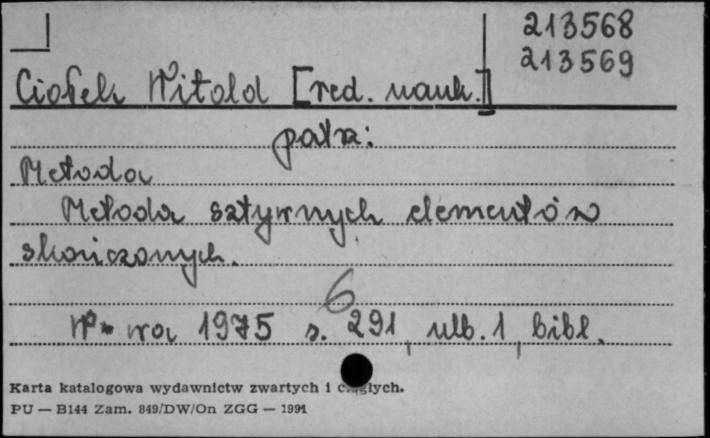 213568
213569
Ciołek Witold [red. nauk.]
patrz:
Metoda
Metoda sztywnych elementów
skończonych.
6
W-wa 1975 s. 291, ulb. 1, bibl.
Karta katalogowa wydawnictw zwartych i ciągłych.
PU — B144 Zam. 849/DW/On ZGG — 1991